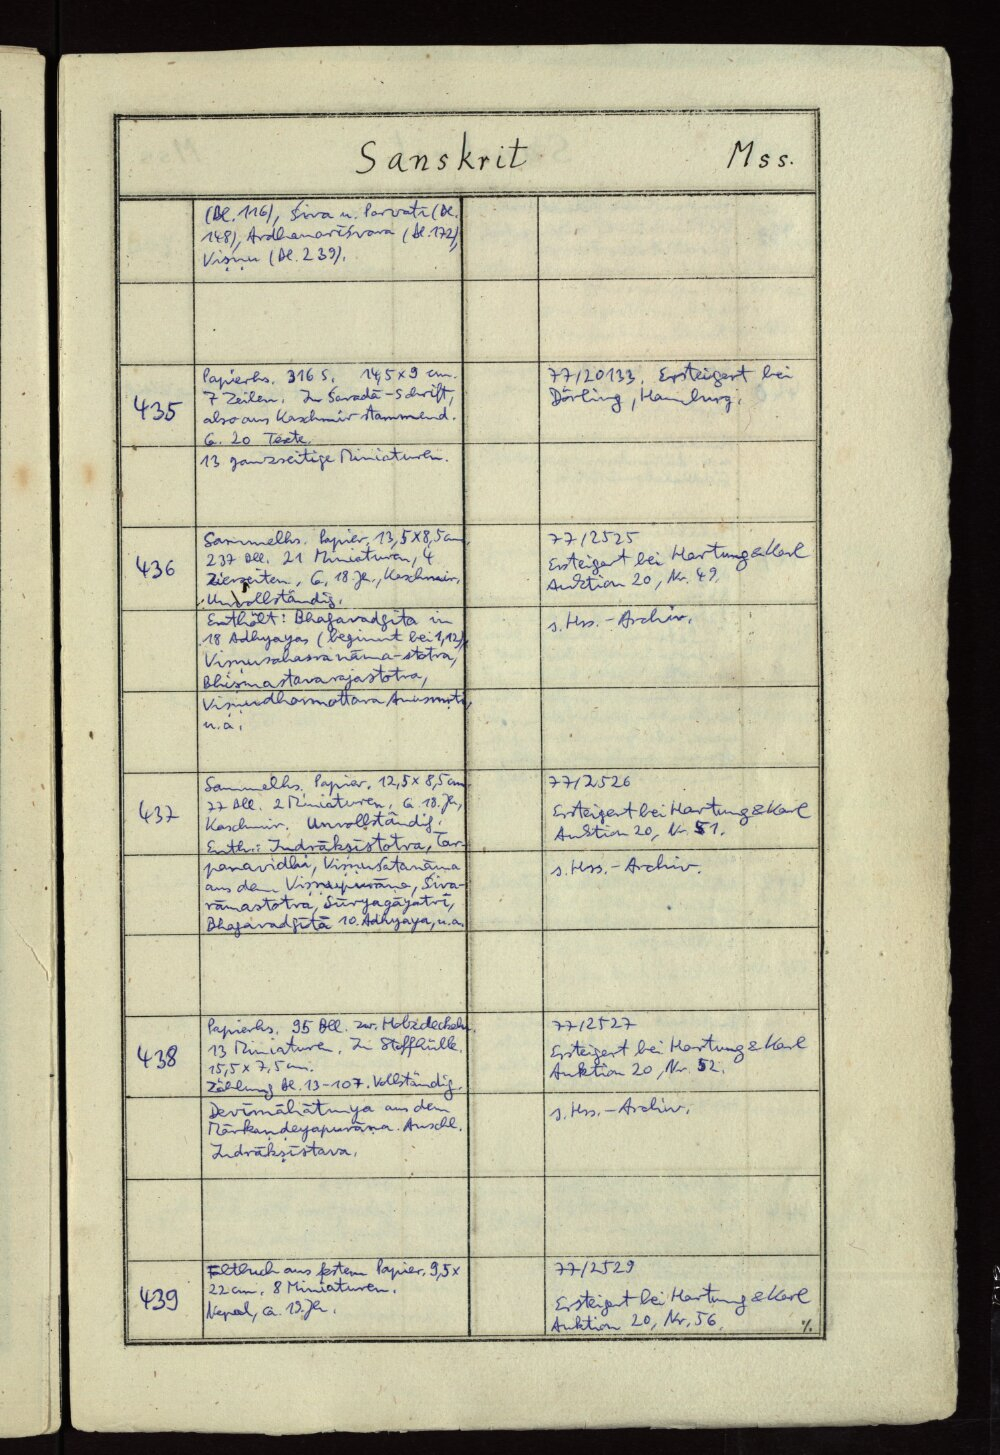 Sanskrit Mss.
(Bl. 116), Śiva u. Parvati (Bl.
148), Ardhanarīśvara (Bl. 172),
Viṣṇu (Bl. 239).
435
Papierhs. 316 S. 14,5 x 9 cm.
7 Zeilen. In Śaradā-Schrift,
also aus Kaschmir stammend.
C. 20 Texte.
13 ganzseitige Miniaturen.
77/20133. Ersteigert bei
Dörling, Hamburg.
436
Sammelhs. Papier, 13,5 x 8,5 cm,
237 Bll. 21 Miniaturen, 4
Zierseiten. C. 18. Jh., Kaschmir.
Unvollständig.
Enthält: Bhagavadgita in
18 Adhyayas (beginnt bei 1,12),
Viṣṇusahasranāma-stotra,
Bhiṣmastavarajastotra,
Viṣṇudharmottara Anusmṛti,
u.a.
77/2525
Ersteigert bei Hartung & Karl
Auktion 20, Nr. 49.
s. Hss.-Archiv.
437
Sammelhs. Papier. 12,5 x 8,5 cm
77 Bll. 2 Miniaturen. C. 18. Jh.,
Kaschmir. Unvollständig.
Enth.: Indrākṣistotra, Tar-
panavidhi, Viṣṇuśatanāma
aus dem Viṣṇupurāṇa, Śiva-
rāmastotra, Sūryagāyatrī,
Bhagavadgītā 10. Adhyaya, u.a.
77/2526
Ersteigert bei Hartung & Karl
Auktion 20, Nr. 51.
s. Hss.-Archiv.
438
Papierhs. 95 Bll. zw. Holzdeckeln.
13 Miniaturen. In Stoffhülle.
15,5 x 7,5 cm.
Zählung Bl. 13-107. Vollständig.
Devīmāhātmya aus dem
Mārkaṇḍeyapurāṇa. Anschl.
Indrākṣīstava.
77/2527
Ersteigert bei Hartung & Karl
Auktion 20, Nr. 52.
s. Hss.-Archiv.
439
Faltbuch aus festem Papier, 9,5 x
22 cm. 8 Miniaturen.
Nepal, ca. 19. Jh.
77/2529
Ersteigert bei Hartung & Karl
Auktion 20, Nr. 56.
./.